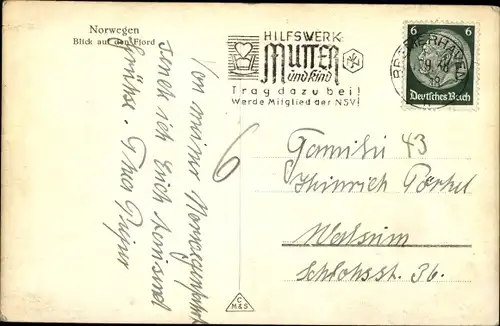 Norwegen
Blick auf den Fjord
HILFSWERK
MUTTER
und kind
Trag dazu bei!
Werde Mitglied der NSV!
6 6
Deutsches Reich
BREMERHAVEN
Von meiner Norwegenfahrt
sende ich Euch
Grüße.
6
Familie 43
Heinrich
Walsum
Schlohsstr. 36.
C
M&S